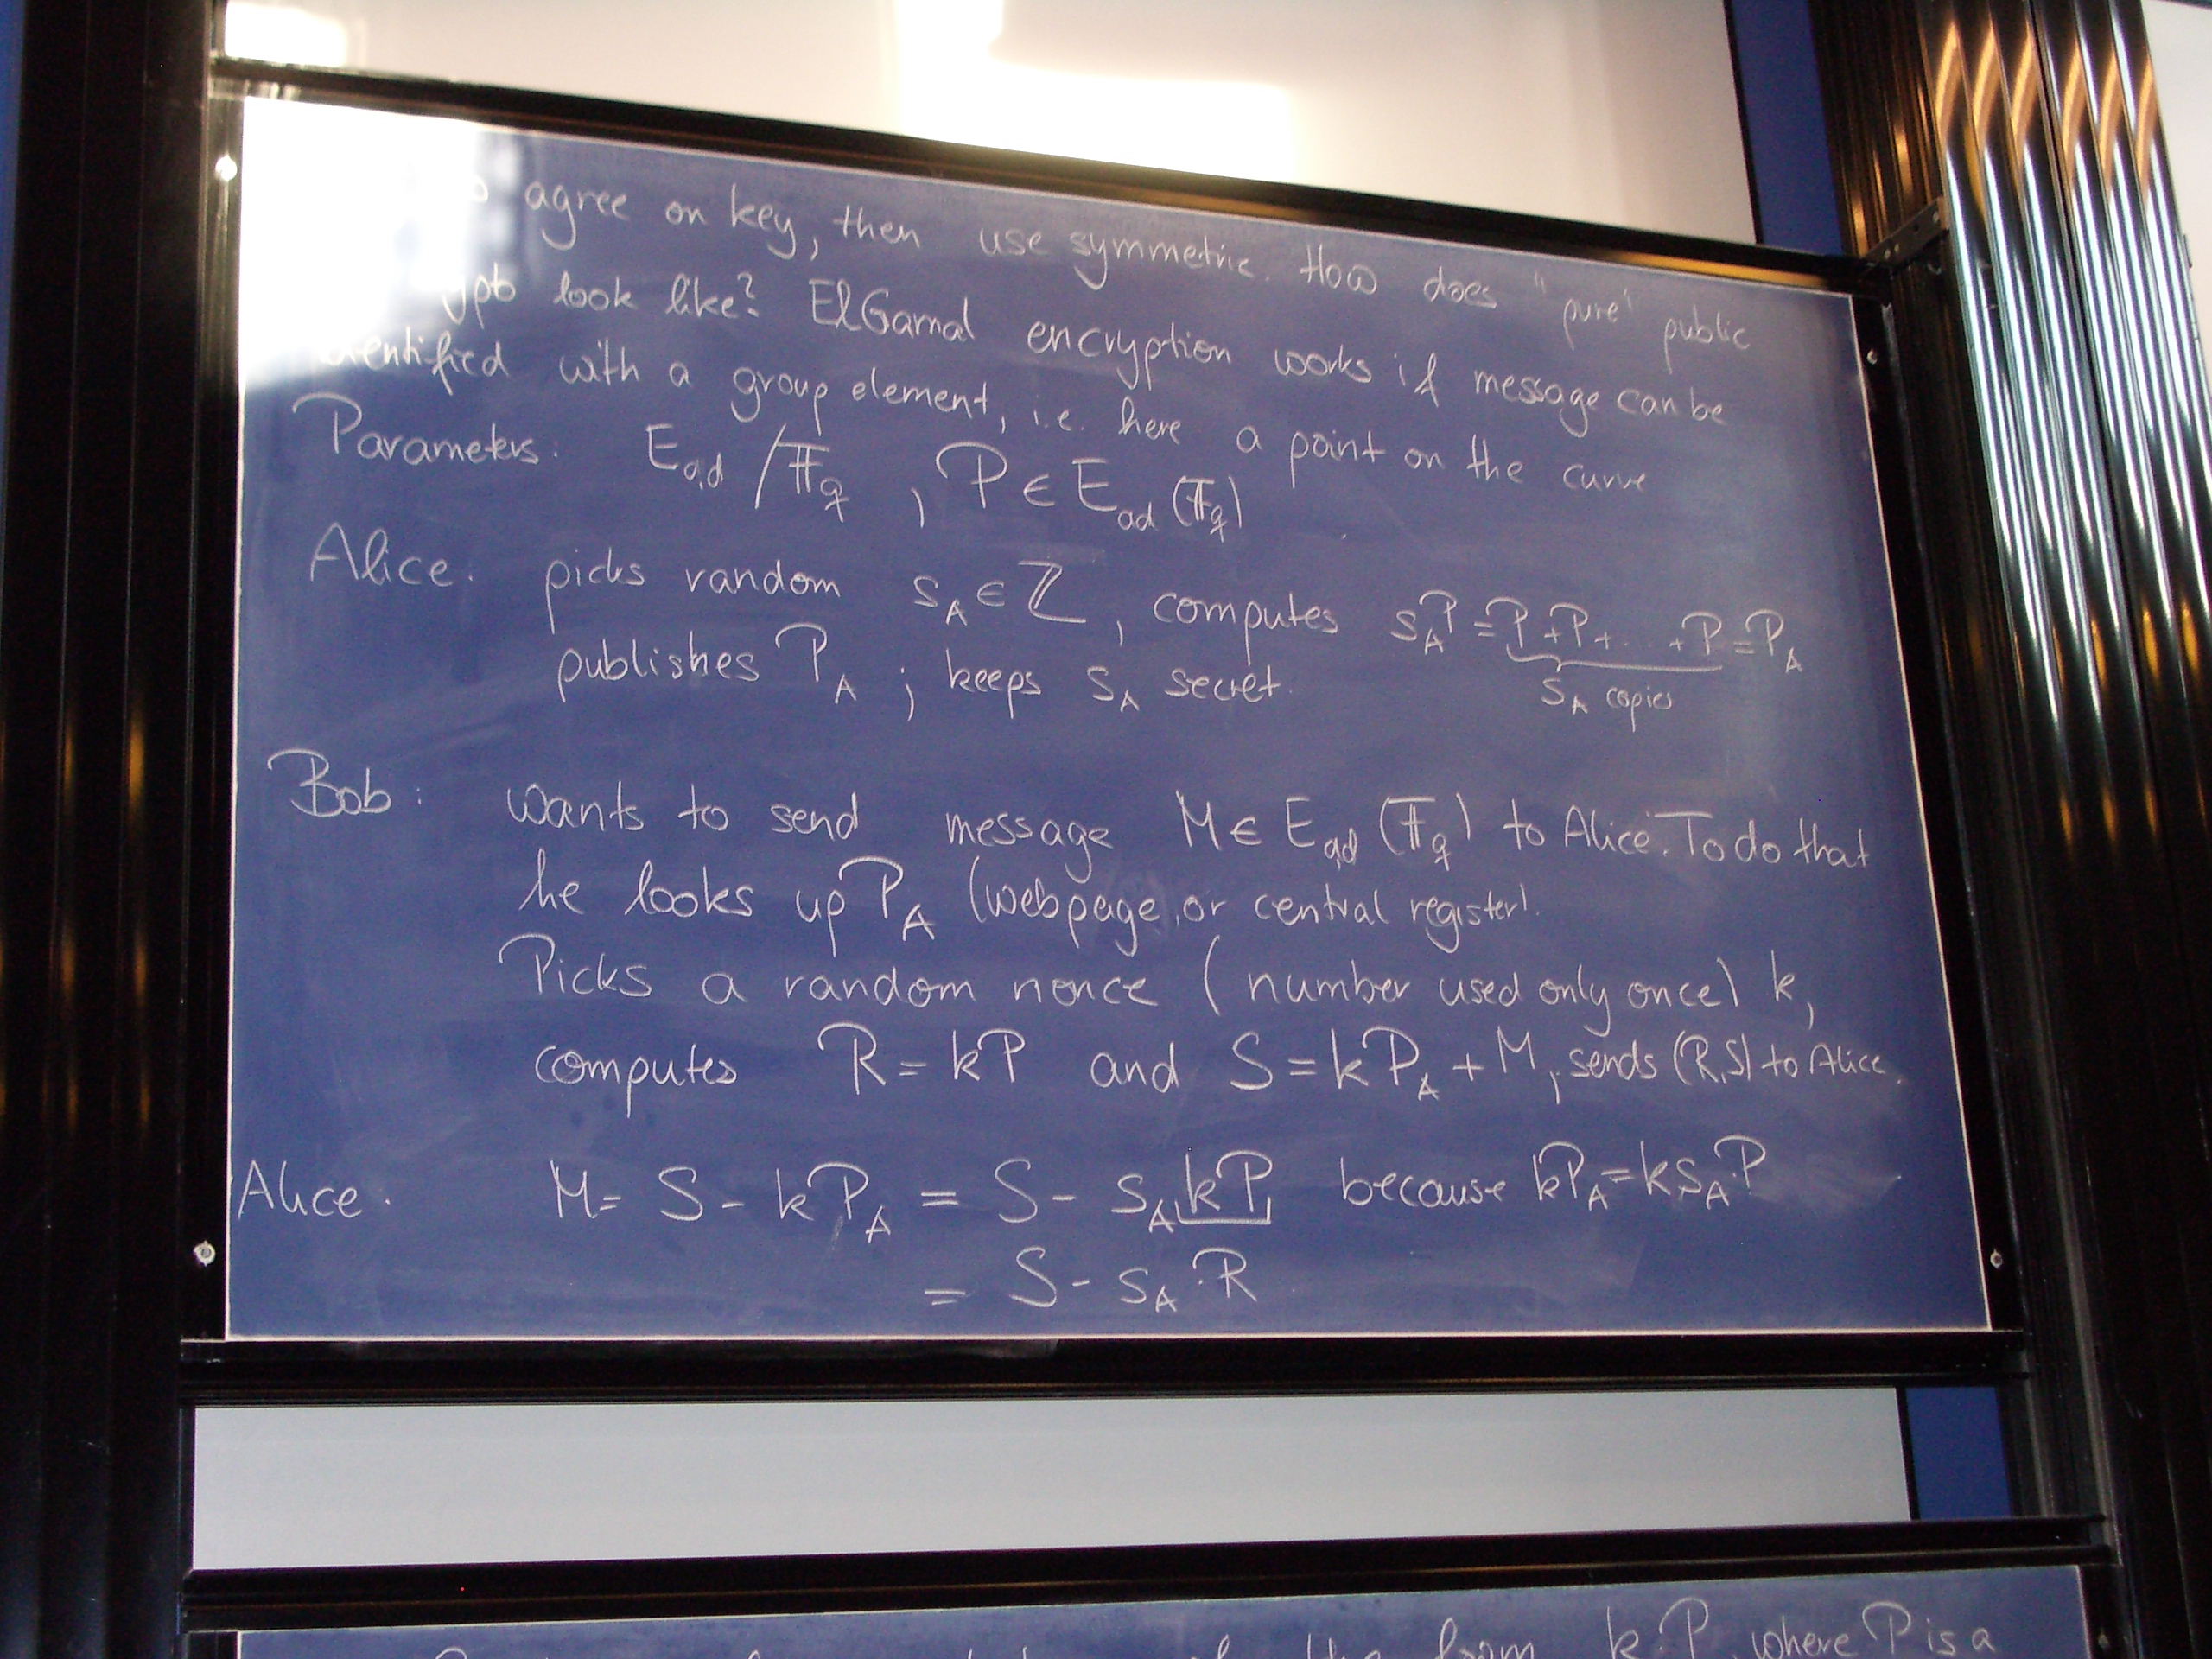 agree on key, then use symmetric. How does "pure" public
look like? ElGamal encryption works if message can be
identified with a group element, i.e. here a point on the curve
Parameters: E_{a,d} / 𝔽_q , P ∈ E_{ad} (𝔽_q)
Alice: picks random s_A ∈ ℤ, computes s_A P = P + P + ... + P = P_A
s_A copies
publishes P_A ; keeps s_A secret.
Bob: wants to send message M ∈ E_{a,d} (𝔽_q) to Alice. To do that
he looks up P_A (webpage, or central register).
Picks a random nonce (number used only once) k,
computes R = kP and S = kP_A + M, sends (R,S) to Alice.
Alice. M = S - kP_A = S - s_A kP because kP_A = k s_A P
= S - s_A · R
from k·P, where P is a